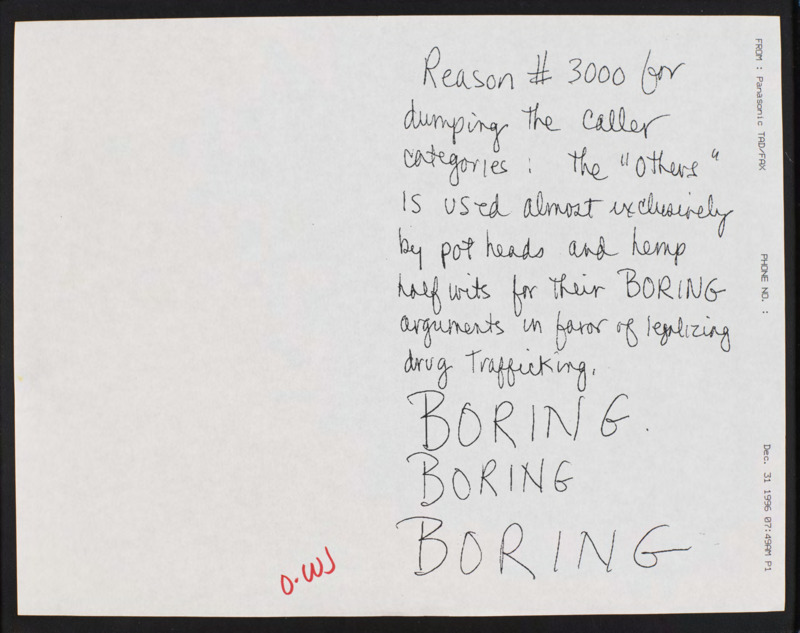 Reason # 3000 for
dumping the caller
categories: the "others"
is used almost exclusively
by pot heads and hemp
half wits for their BORING
arguments in favor of legalizing
drug trafficking.
BORING.
BORING
BORING
O-WJ
FROM : Panasonic TAD/FAX PHONE NO. : Dec. 31 1996 07:49AM P1